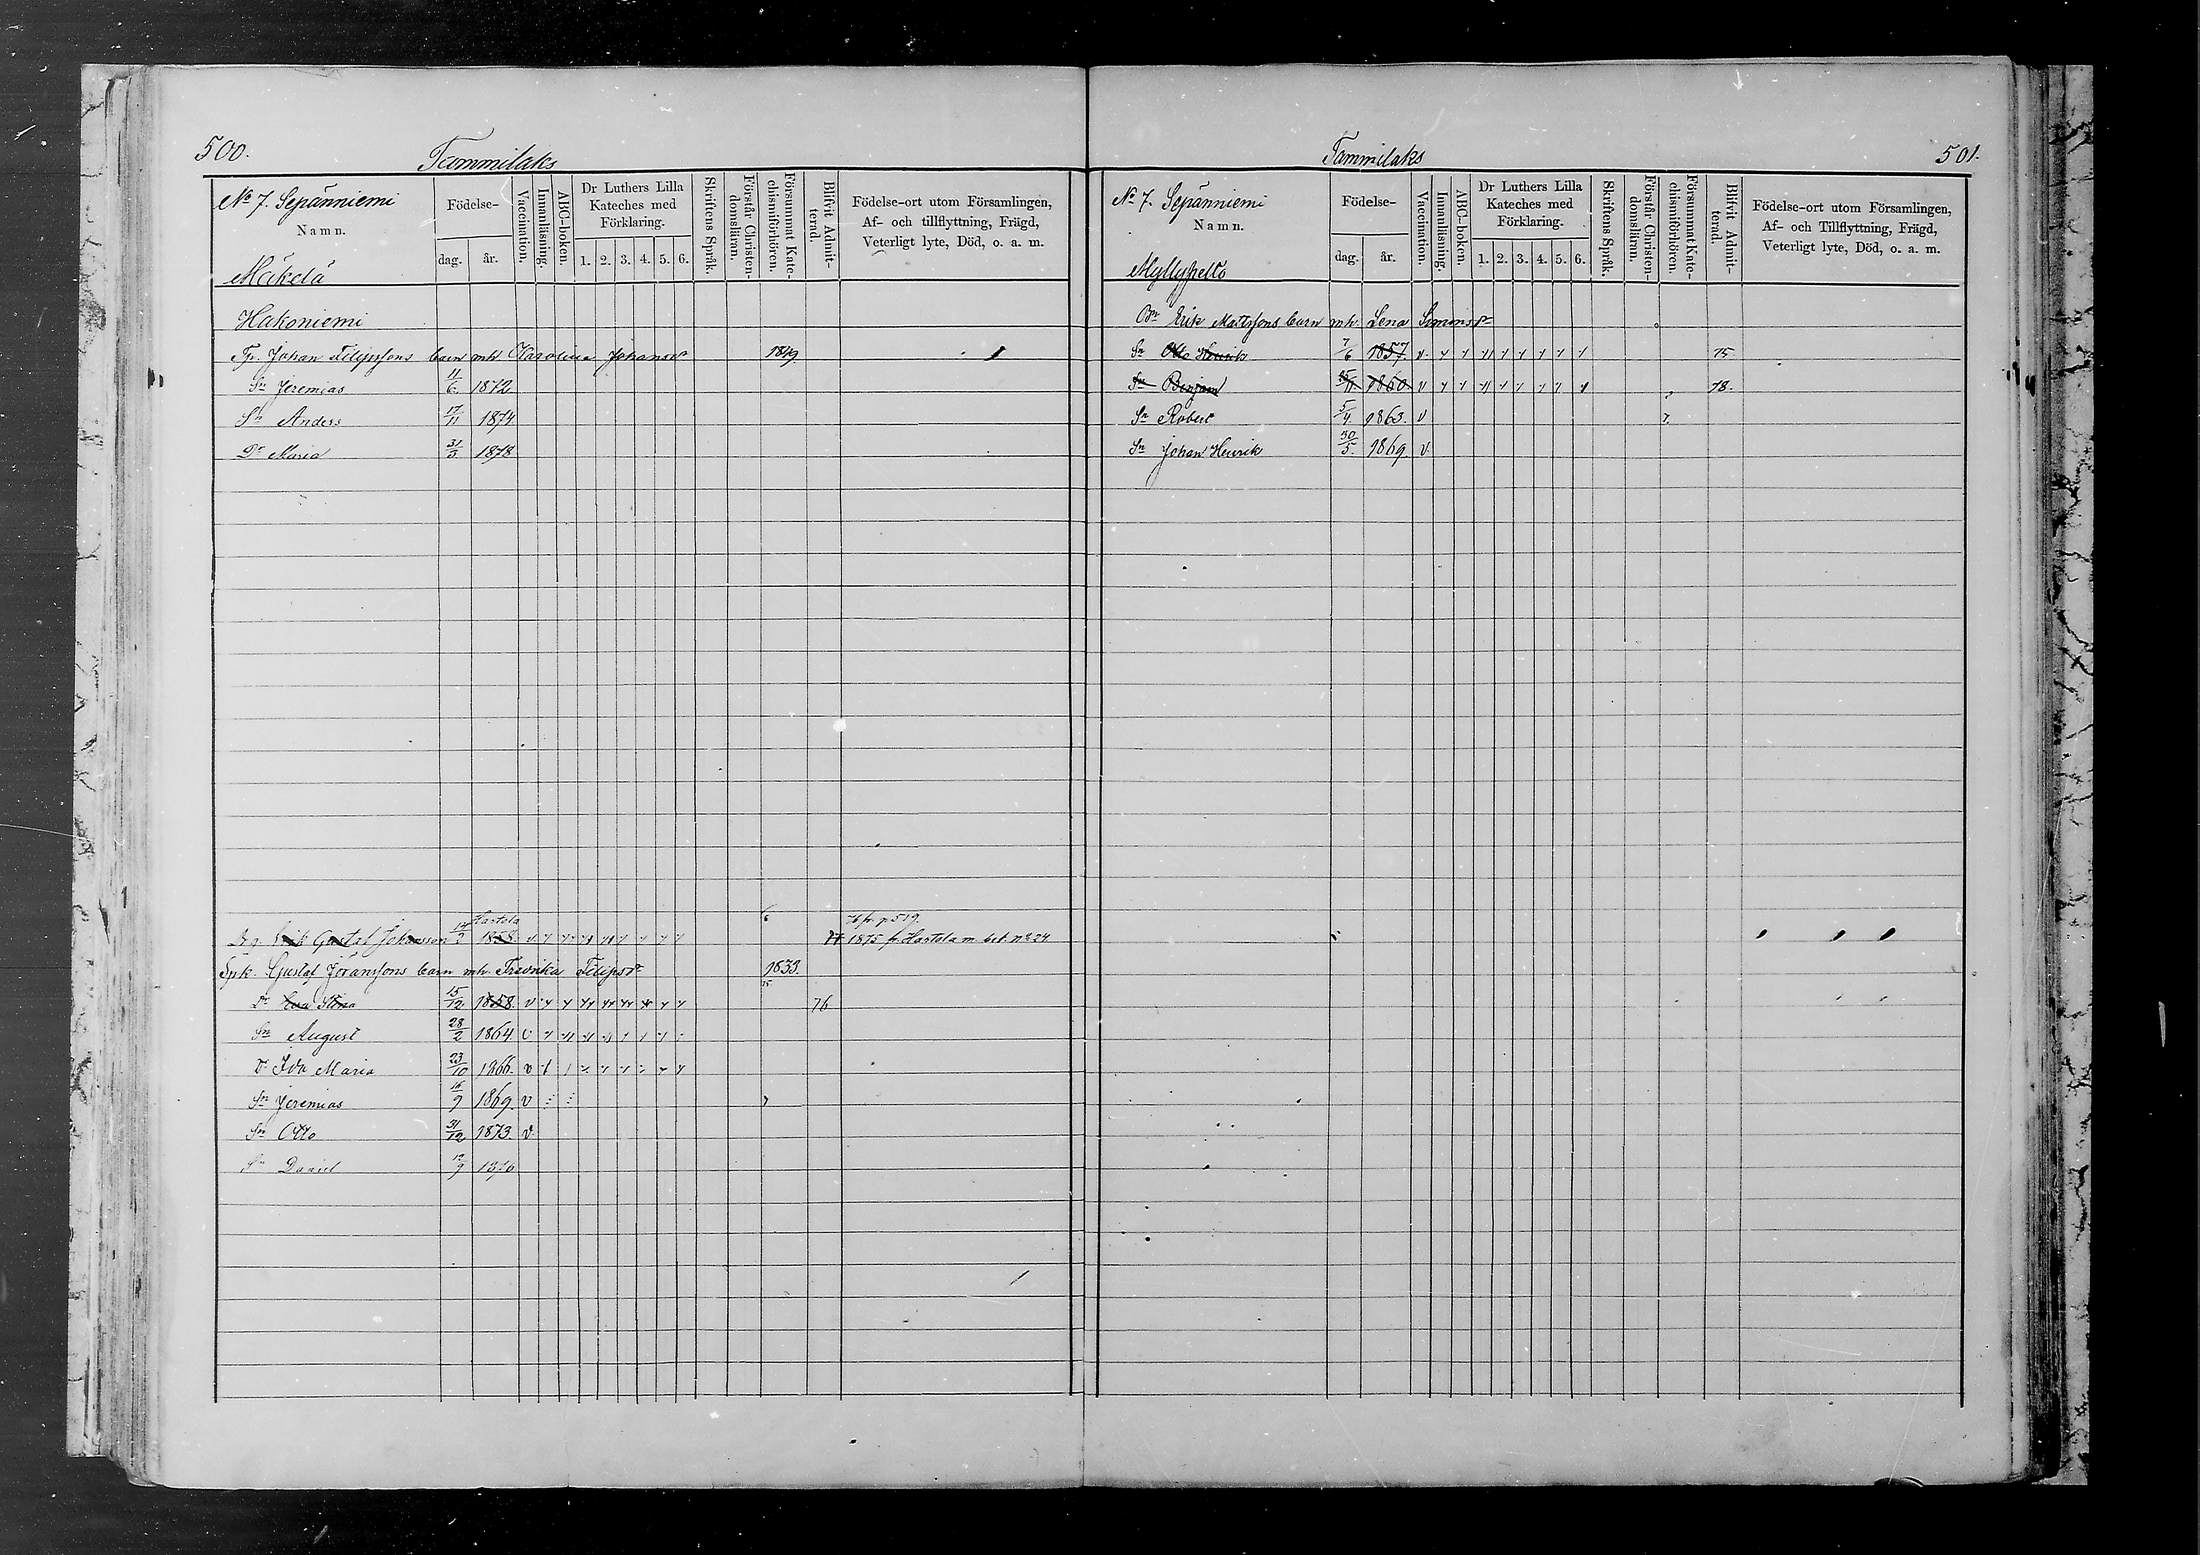 500.
Tammilaks
No 7. Sepänniemi
Namn.
Mäkelä
Födelse-
dag. år.
Vaccination.
Innanläsning.
ABC-boken.
Dr Luthers Lilla Kateches med Förklaring.
1. 2. 3. 4. 5. 6.
Skriftens Språk.
Förstår Christendomsläran.
Försummat Katechismiförhören.
Blifvit Admitterad.
Födelse-ort utom Församlingen, Af- och tillflyttning, Frägd, Veterligt lyte, Död, o. a. m.
Hakoniemi
Tp. Johan Filipssons barn mh Karolina Johansdr 1849
Sn Jeremias 11/6 1872
Sn Anders 17/11 1874
Dr Maria 31/3 1878
Hartola 6 76 fr. p 519.
Erik Gustaf Johansson 1858. v 1875 fr Hartola m. bet. no 24
Spk. Gustaf Göranssons barn mh. Fredrika Filipsdr 1833.
Dr Eva Stina 15/12 1858. v 76
Sn August 28/2 1864 v
Dr Ida Maria 23/10 1866. v
Sn Jeremias 16/9 1869. v
Sn Otto 31/12 1873. v.
Sn Daniel 12/9 1876
Tammilaks
501.
No 7. Sepänniemi
Namn.
Myllypelto
Födelse-
dag. år.
Vaccination.
Innanläsning.
ABC-boken.
Dr Luthers Lilla Kateches med Förklaring.
1. 2. 3. 4. 5. 6.
Skriftens Språk.
Förstår Christendomsläran.
Försummat Katechismiförhören.
Blifvit Admitterad.
Födelse-ort utom Församlingen, Af- och Tillflyttning, Frägd, Veterligt lyte, Död, o. a. m.
Erik Mattssons barn mh. Lena Simonsdr
Sn Otto Henrik 7/6 1857. v. 75
Sn Benjam 1860 v 78.
Sn Robert 5/4 1863. v 7.
Sn Johan Henrik 30/5. 1869. v.